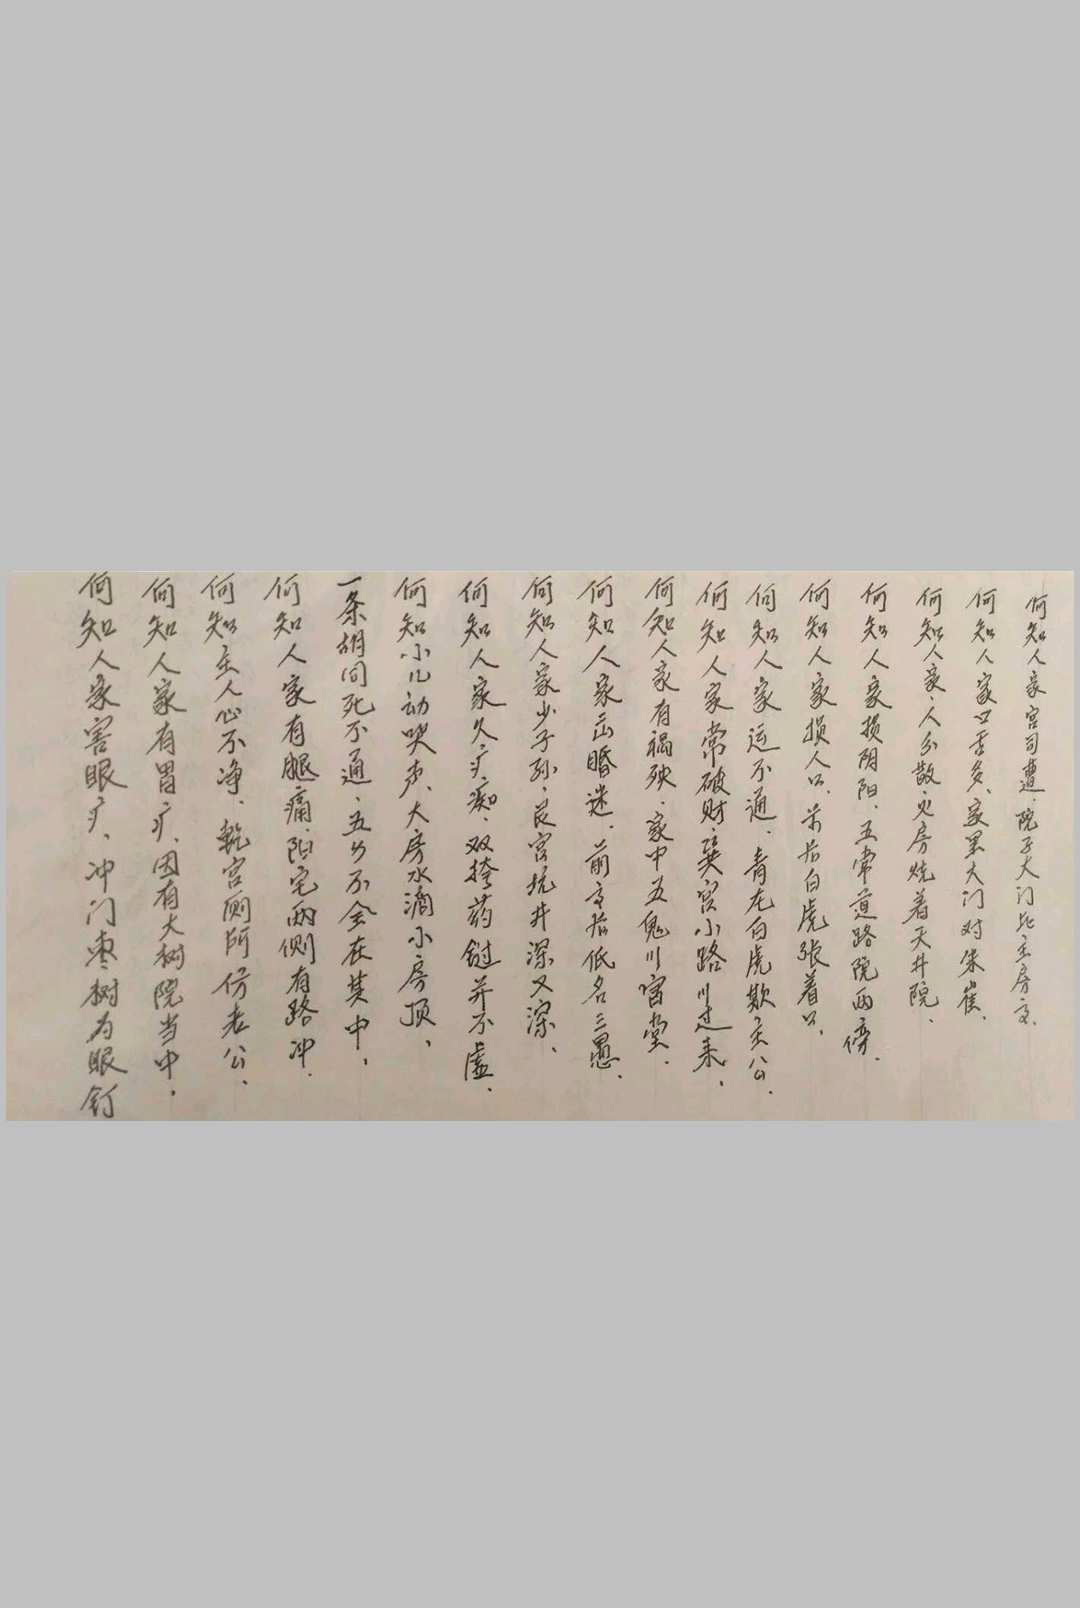 何知人家官司遭、院子大门比主房高、
何知人家口舌多、家里大门对朱雀、
何知人家、人分散、火房烧着天井院、
何知人家损阴阳、五常道路院两傍、
何知人家损人口、前后白虎张着口、
何知人家运不通、青龙白虎欺主公、
何知人家常破财、巽宫小路川过来、
何知人家有祸殃、家中五鬼川宫堂、
何知人家出昏迷、前高后低名三愚、
何知人家少子孙、艮宫坑井深又深、
何知人家久疒痴、双掩药并不虚、
何知小儿动哭声、大房水滴小房顶、
一条胡同死不通、五步不会在其中、
何知人家有腿痛、阳宅两侧有路冲、
何知主人心不净、乾宫厕所伤老公、
何知人家有胃疒、因有大树院当中、
何知人家害眼疒、冲门枣树为眼钉